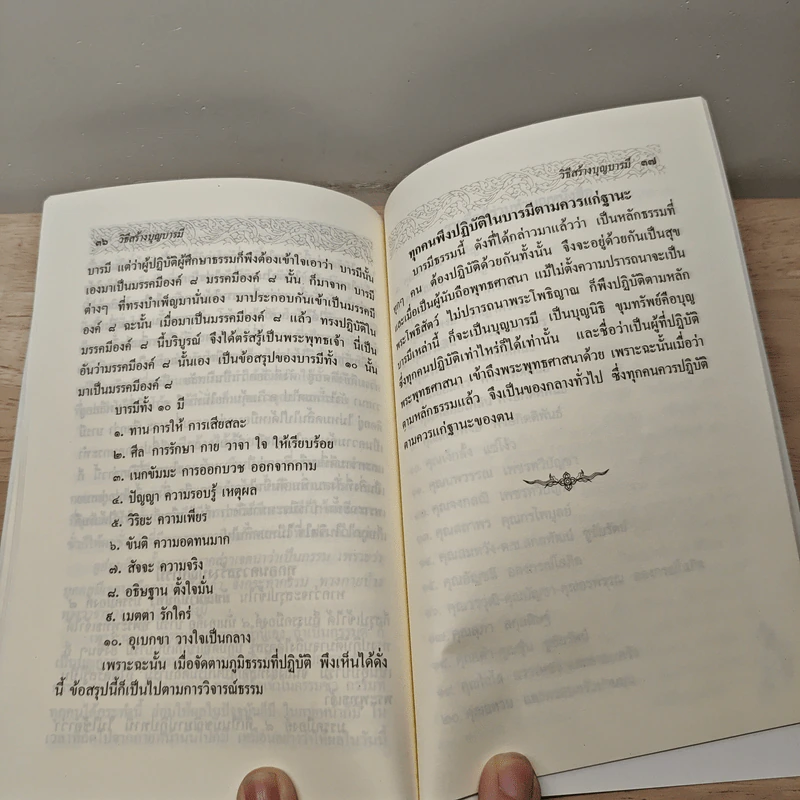 ๓๖ วิธีสร้างบุญบารมี
บารมี แต่ว่าผู้ปฏิบัติผู้ศึกษาธรรมก็พึงต้องเข้าใจเอาว่า บารมีนั้น
เองมาเป็นมรรคมีองค์ ๘ มรรคมีองค์ ๘ นั้น ก็มาจาก บารมี
ต่างๆ ที่ทรงบำเพ็ญมานั่นเอง มาประกอบกันเข้าเป็นมรรคมี
องค์ ๘ ฉะนั้น เมื่อมาเป็นมรรคมีองค์ ๘ แล้ว ทรงปฏิบัติใน
มรรคมีองค์ ๘ นี้บริบูรณ์ จึงได้ตรัสรู้เป็นพระพุทธเจ้า นี่เป็น
อันว่ามรรคมีองค์ ๘ นั้นเอง เป็นข้อสรุปของบารมีทั้ง ๑๐ นั้น
มาเป็นมรรคมีองค์ ๘
บารมีทั้ง ๑๐ มี
๑. ทาน การให้ การเสียสละ
๒. ศีล การรักษา กาย วาจา ใจ ให้เรียบร้อย
๓. เนกขัมมะ การออกบวช ออกจากกาม
๔. ปัญญา ความรอบรู้ เหตุผล
๕. วิริยะ ความเพียร
๖. ขันติ ความอดทนมาก
๗. สัจจะ ความจริง
๘. อธิษฐาน ตั้งใจมั่น
๙. เมตตา รักใคร่
๑๐. อุเบกขา วางใจเป็นกลาง
เพราะฉะนั้น เมื่อจัดตามภูมิธรรมที่ปฏิบัติ พึงเห็นได้ดั่ง
นี้ ข้อสรุปนี้ก็เป็นไปตามการวิจารณ์ธรรม
วิธีสร้างบุญบารมี ๓๗
ทุกคนพึงปฏิบัติในบารมีตามควรแก่ฐานะ
บารมีธรรมนี้ ดังที่ได้กล่าวมาแล้วว่า เป็นหลักธรรมที่
ทุกๆ คน ต้องปฏิบัติด้วยกันทั้งนั้น จึงจะอยู่ด้วยกันเป็นสุข
และเมื่อเป็นผู้นับถือพุทธศาสนา แม้ไม่ตั้งความปรารถนาจะเป็น
พระโพธิสัตว์ ไม่ปรารถนาพระโพธิญาณ ก็พึงปฏิบัติตามหลัก
บารมีเหล่านี้ ก็จะเป็นบุญบารมี เป็นบุญนิธิ ขุมทรัพย์คือบุญ
ซึ่งทุกคนปฏิบัติเท่าไหร่ก็ได้เท่านั้น และชื่อว่าเป็นผู้ที่ปฏิบัติ
พระพุทธศาสนา เข้าถึงพระพุทธศาสนาด้วย เพราะฉะนั้นเมื่อว่า
ตามหลักธรรมแล้ว จึงเป็นของกลางทั่วไป ซึ่งทุกคนควรปฏิบัติ
ตามควรแก่ฐานะของตน